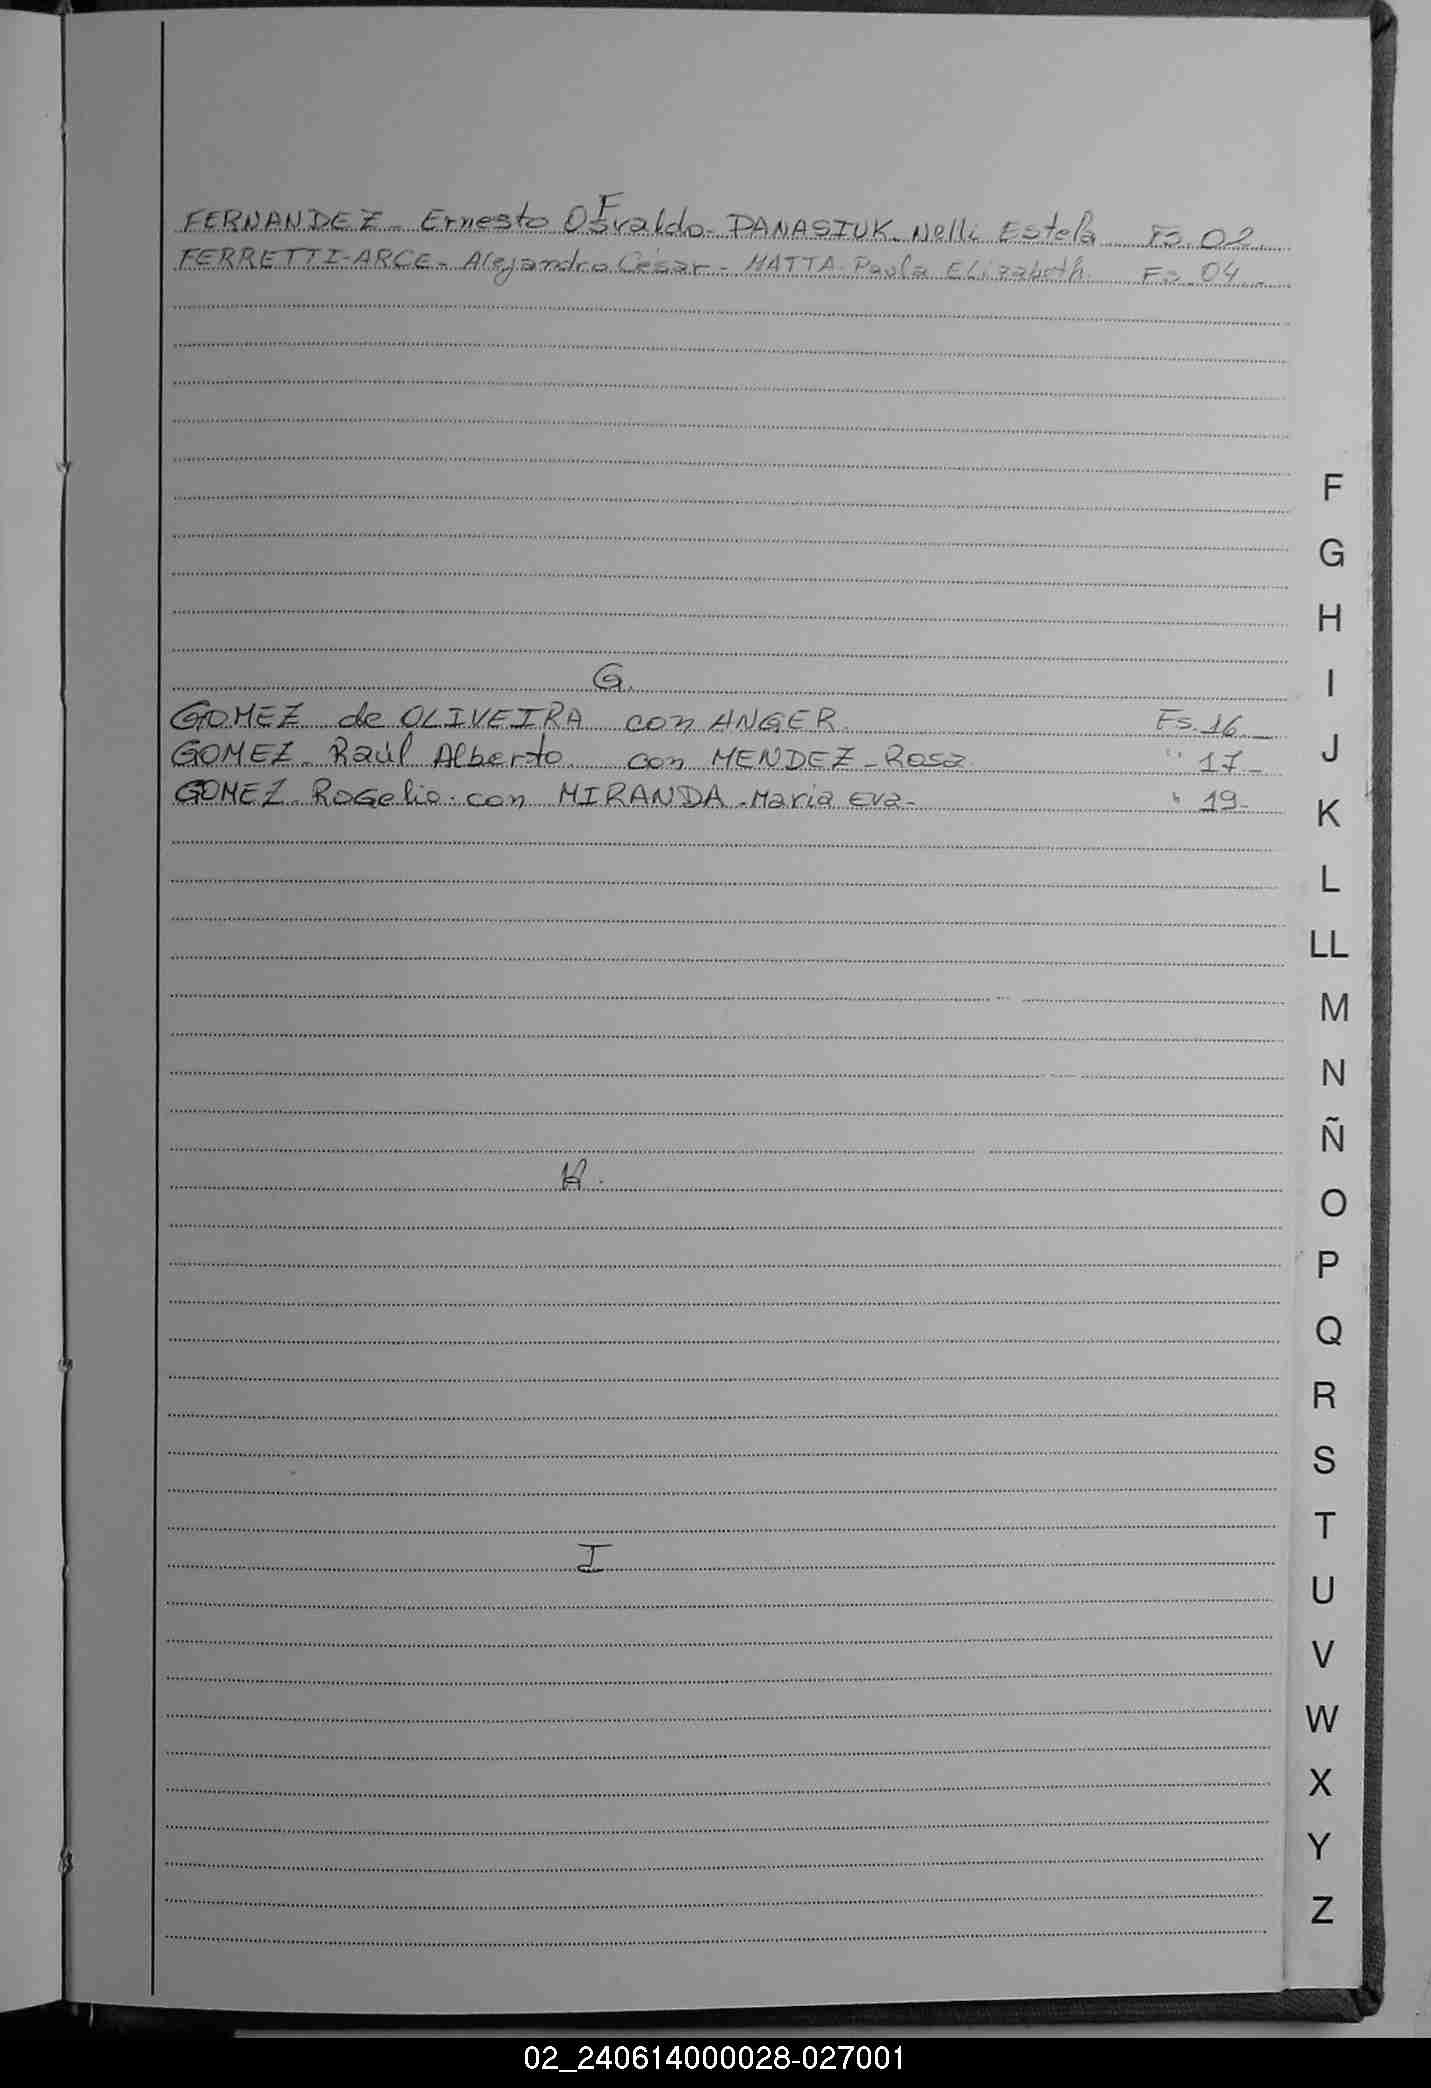 F
FERNANDEZ - Ernesto Osvaldo - DANASIUK - Nelli Estela Fs. 02 -
FERRETTI-ARCE - Alejandro César - MATTA - Paula Elizabeth. Fs. 04 -
G.
GOMEZ de OLIVEIRA con ANGER. Fs. 16 -
GOMEZ - Raúl Alberto con MENDEZ - Rosa " 17 -
GOMEZ - Rogelio - con MIRANDA - Maria Eva - " 19 -
H.
I
F
G
H
I
J
K
L
LL
M
N
Ñ
O
P
Q
R
S
T
U
V
W
X
Y
Z
02_240614000028-027001